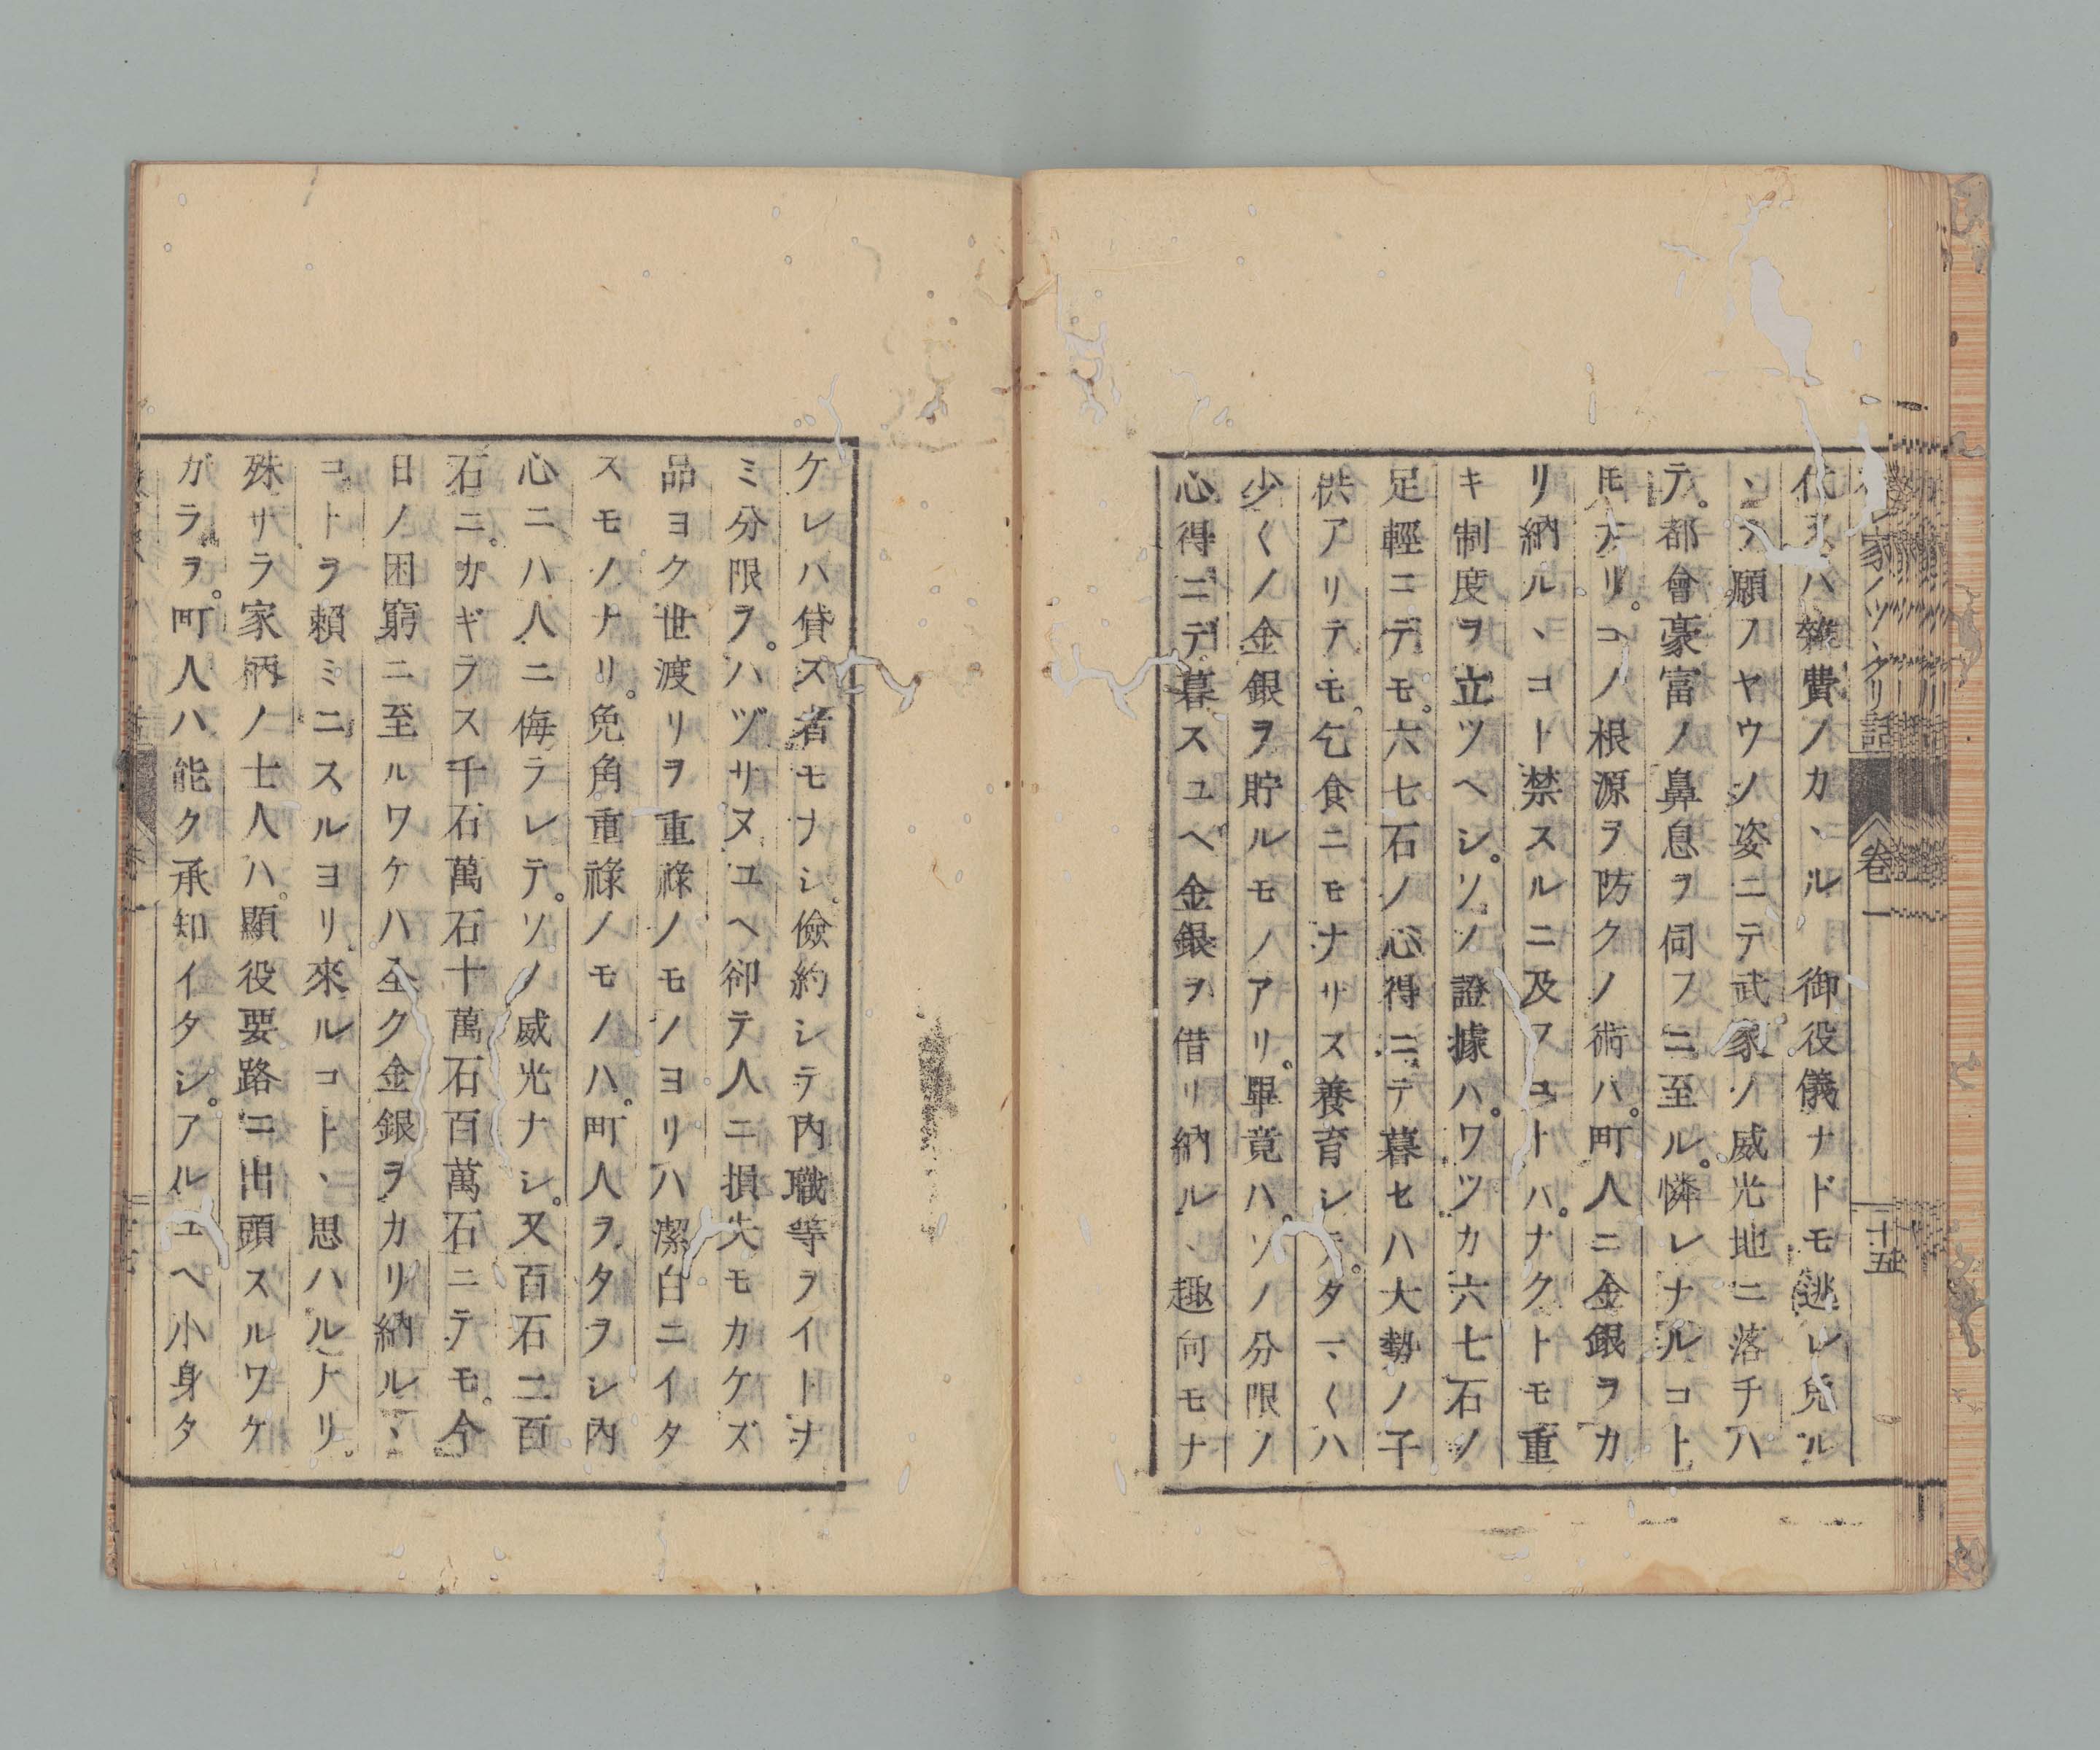 家ノツクリ話 卷一 十五
代又ハ雜費ノカヽル 御役儀ナドモ逃レ免ル
ヽハ願ノヤウノ姿ニテ武家ノ威光地ニ落チハ
テ。都會豪富ノ鼻息ヲ伺フニ至ル。憐レナルコト
モナリ。コノ根源ヲ防クノ術ハ。町人ニ金銀ヲカ
リ納ルヽコト禁スルニ及フコトハ。ナクトモ重
キ制度ヲ立ツヘシ。ソノ證據ハ。ワツカ六七石ノ
足輕ニデモ。六七石ノ心得ニテ暮セハ大勢ノ子
供アリテモ。乞食ニモナサス養育シテ。タマ〱ハ
少〱ノ金銀ヲ貯ルモノアリ。畢竟ハ。ソノ分限ノ
心得ニデ暮スユベ金銀ヲ借リ納ルヽ趣向モナ
ケレハ貸ス者モナシ。儉約シテ內職等ヲイトナ
ミ分限ヲ。ハヅサヌユヘ卻テ人ニ損失モカケズ
品ヨク世渡リヲ重祿ノモノヨリハ潔白ニイタ
スモノナリ。免角重祿ノモノハ。町人ヲタヲシ內
心ニハ人ニ侮ラレテ。ソノ威光ナシ。又百石二百
石ニ。カギラス千石萬石十萬石百萬石ニテモ。今
日ノ困窮ニ至ルワケハ全ク金銀ヲカリ納ルヽ
コトヲ賴ミニスルヨリ。來ルコトヽ思ハルヽナリ。
殊サラ家柄ノ士人ハ。顯役要路ニ出頭スルワケ
ガラヲ。町人ハ能ク承知イタシ。アルユヘ小身タ